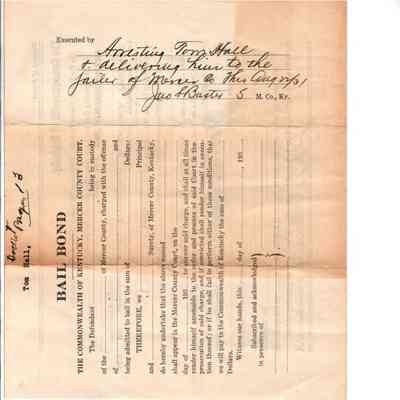 Executed by
Arresting Tom Hall
& delivering him to the
Jailer of Mercer Co This Aug
S. M. Co., Ky.
Tom Hall,
BAIL BOND
THE COMMONWEALTH OF KENTUCKY, MERCER COUNTY COURT.
The Defendant being in custody
of the of Mercer County, charged with the offense
of and
being admitted to bail in the sum of Dollars:
THEREFORE, we Principal
and Surety, of Mercer County, Kentucky,
do hereby undertake that the above named
shall appear in the Mercer County Court, on the
day of 195 to answer said charge, and shall at all times
render himself amenable to the order and process of said Court in the
prosecution of said charge, and if convicted shall render himself in execu-
tion thereof; or if he shall fail to perform either of these conditions, that
we will pay to the Commonwealth of Kentucky the sum of
Dollars.
Witness our hands, this day of , 195
Subscribed and acknowledged
in presence of